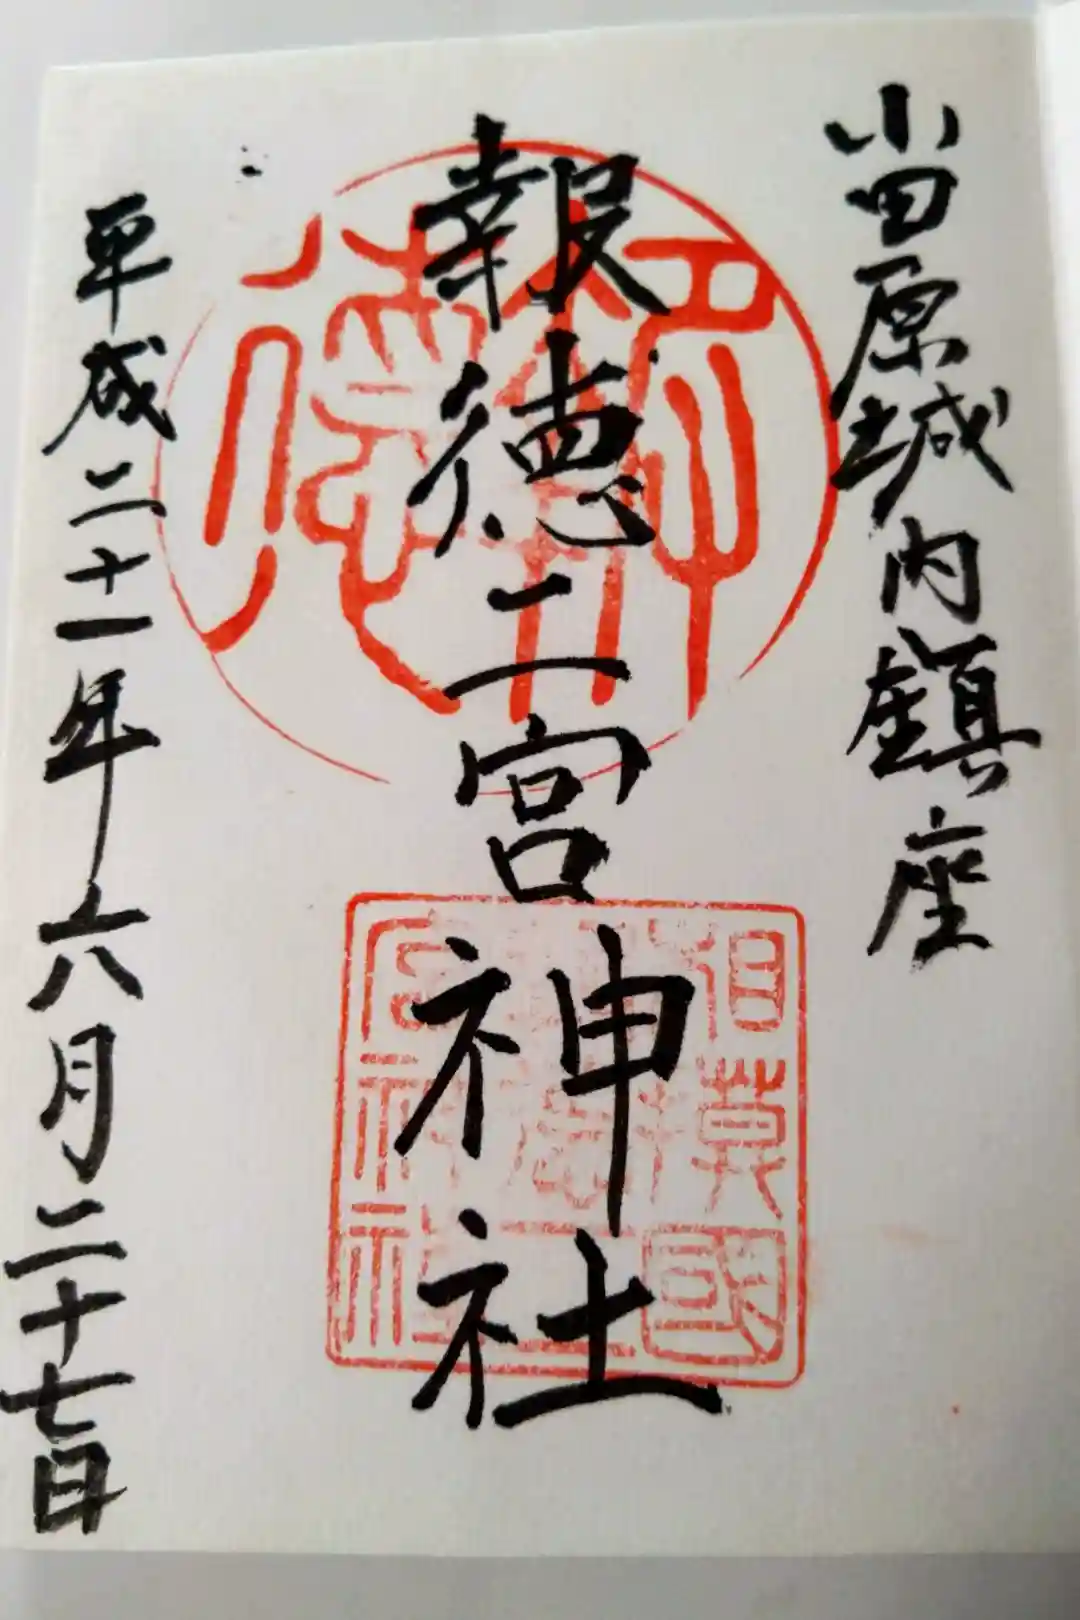 小田原城内鎮座
報徳二宮神社
平成二十一年六月二十七日
報徳
相模國
報徳二
宮神社